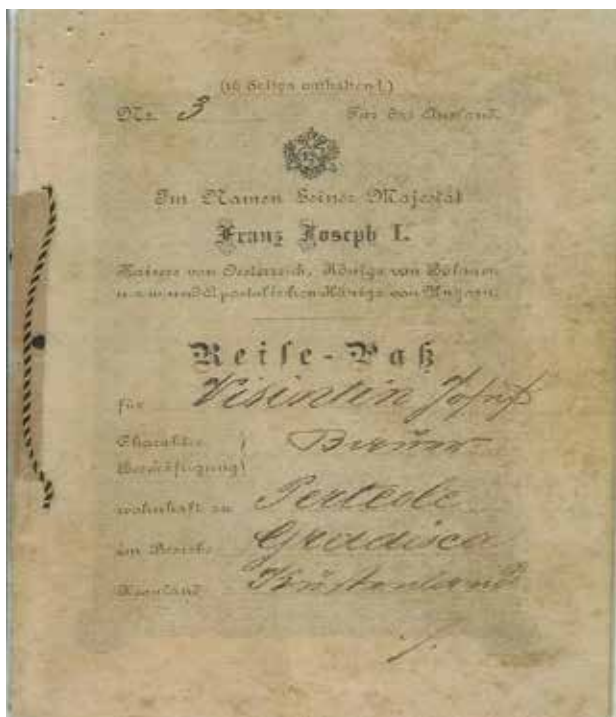 (16 Seiten enthaltend.)
Nr. 3 Für das Ausland.
Im Namen Seiner Majestät
Franz Joseph I.
Kaisers von Oesterreich, Königs von Böhmen
u. s. w. und Apostolischen Königs von Ungarn.
Reise-Paß
für Visintin Josef
Charakter
Beschäftigung
wohnhaft zu Perteole
im Bezirke Gradisca
Kronland Küstenland